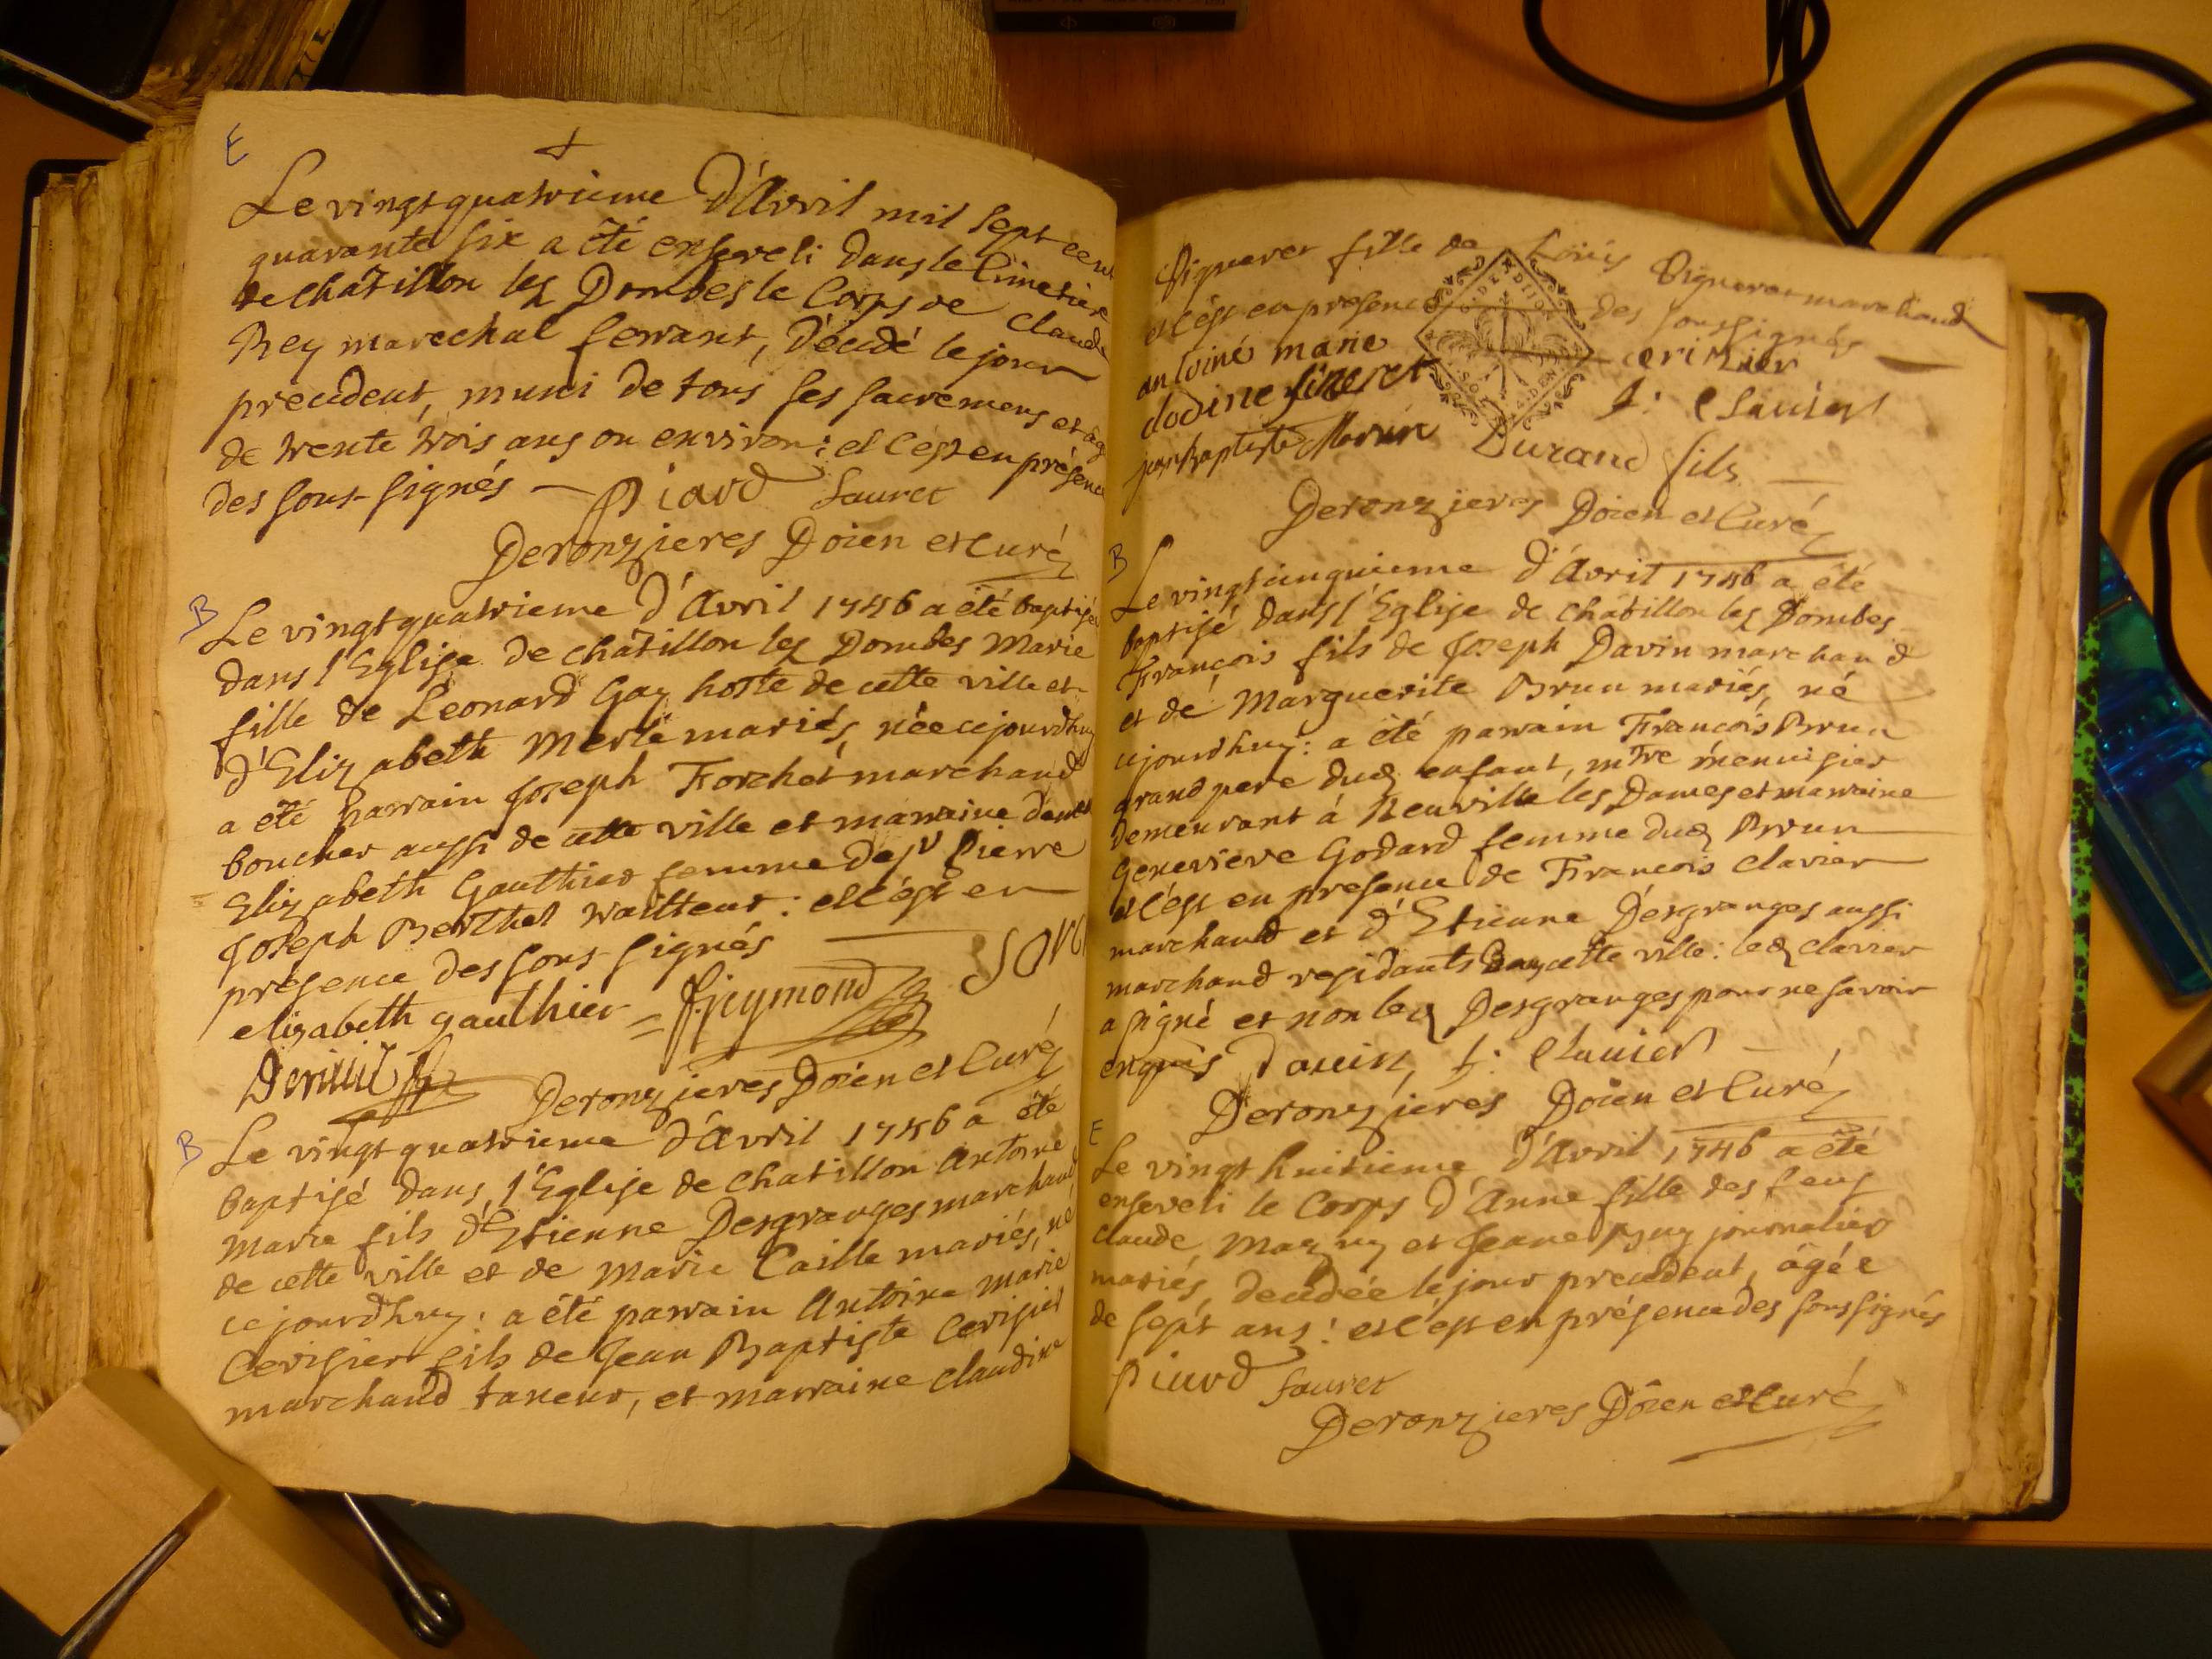 E
Le vingt quatrieme d'Avril mil sept cent
quarante six a été enseveli dans le Cimetiere
de châtillon les Dombes le Corps de Claude
Rey marechal ferrant, décédé le jour
precedent, muni de tous ses sacremens et agé
de trente trois ans ou environ: et c'est en présence
des sous-signés Piard Sauret
Deronzieres Doien et Curé
B
Le vingt quatrieme d'Avril 1746 a été baptisée
dans l'Eglise de châtillon les Dombes Marie
fille de Leonard Gay hoste de cette ville et
d'Elizabeth Merle mariés, née cejourdhuy
a été parrain Joseph Forchet marchand
boucher aussi de cette ville et marraine
Elizabeth Gauthier femme de sr Pierre
Joseph Berthet traitteur: et c'est en
présence des sous-signés
elisabeth gauthier
Deronzieres Doien et Curé
B
Le vingt quatrieme d'Avril 1746 a été
baptisé dans l'Eglise de chatillon Antoine
Marie fils d'Etienne Desgranges marchand
de cette ville et de Marie Caille mariés, né
ce jourdhuy: a été parrain Antoine Marie
Cerisier fils de Jean Baptiste Cerisier
marchand taneur, et marraine claudine
Vigneret fille de Loüis Vigneret marchand
et c'est en presence des soussignés
antoine marie cerizier
dodine fineret f: Clauier
jean Baptiste Morin Durand fils
Deronzieres Doien et Curé
B
Le vingt cinquieme d'Avril 1746 a été
baptisé dans l'Eglise de châtillon les Dombes
François fils de Joseph Davin marchand
et de Marguerite Brun mariés, né
cejourdhuy: a été parrain François Brun
grand pere dud enfant, mtre menuisier
demeurant à Neuville les Dames et marraine
Genevieve Godard femme dud Brun
et c'est en presence de François Clavier
marchand et d'Etienne Desgranges aussi
marchand residants dans cette ville: led Clavier
a signé et non led Desgranges pour ne savoir
enquis Dauin, f: Clauier
Deronzieres Doien et Curé
E
Le vingt huitieme d'Avril 1746 a été
enseveli le Corps d'Anne fille des feus
Claude Mazuy et Jeane Buy journalier
mariés, décédée le jour precedent, âgée
de sept ans: et c'est en présence des soussignés
Piard Sauret
Deronzieres Doien et Curé